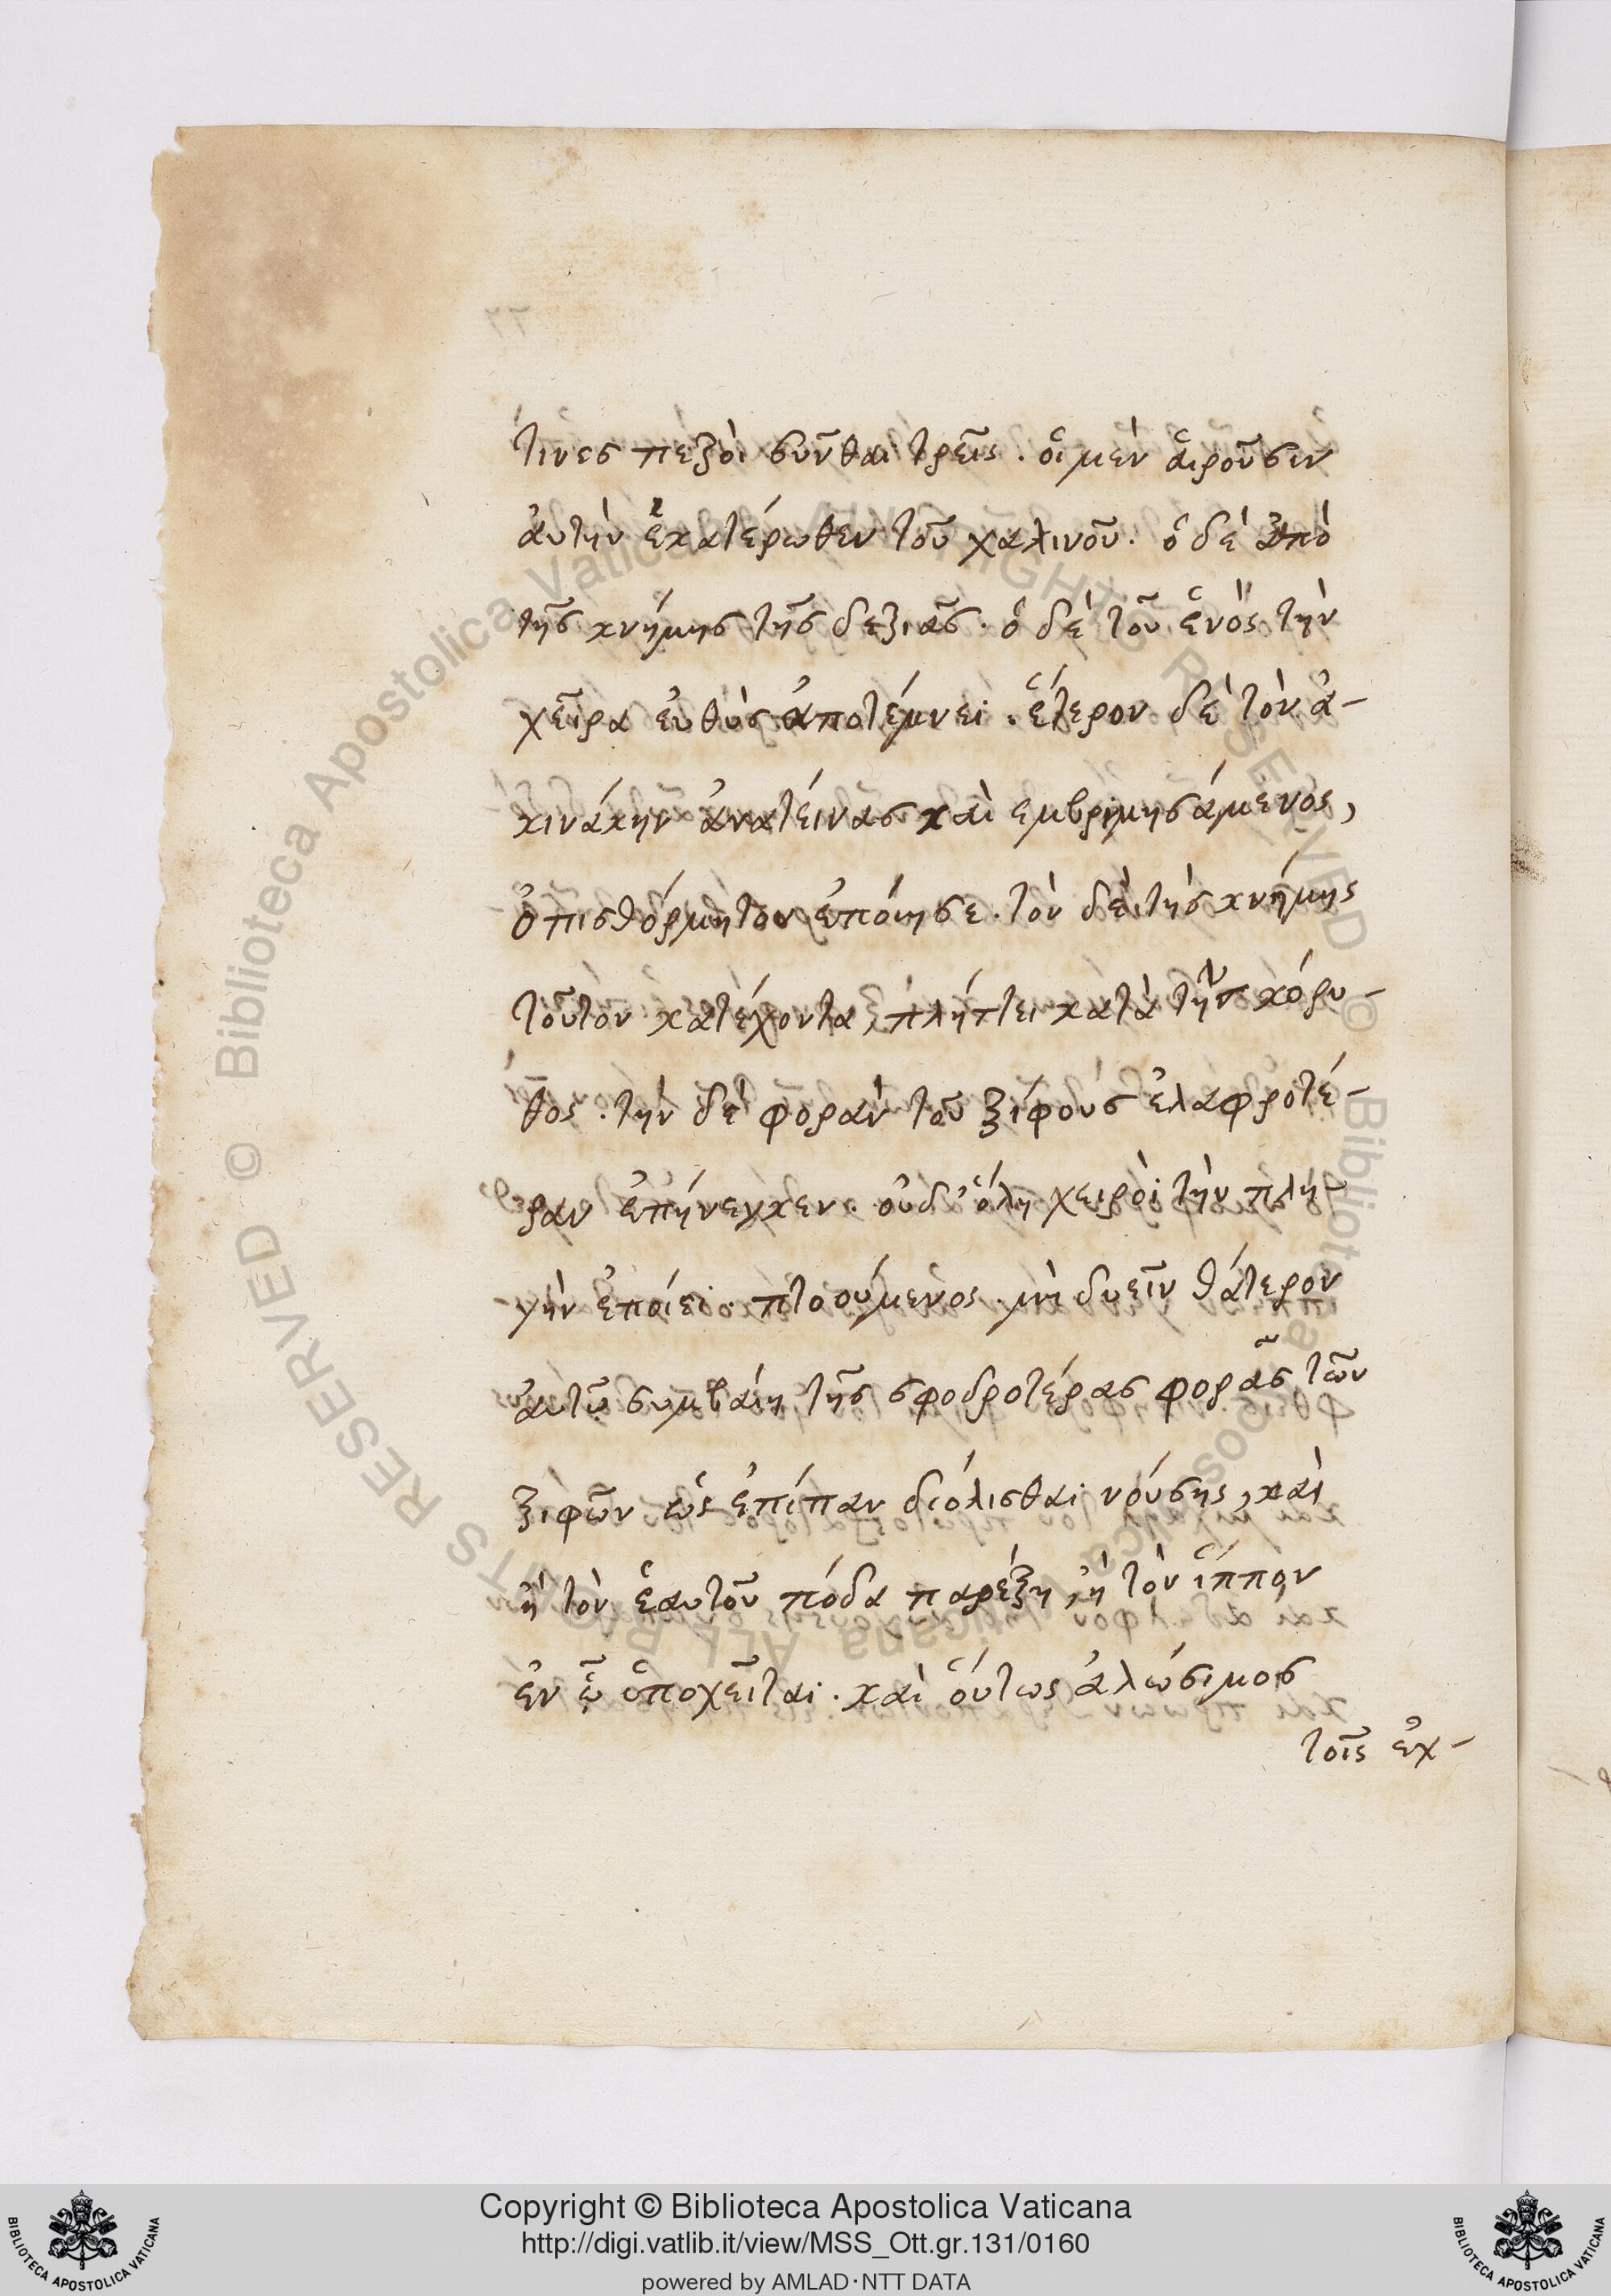 τινες πεζοὶ συνθαι τρεῖς. οἱ μὲν αἱροῦσιν
αὐτὴν ἑκατέρωθεν τοῦ χαλινοῦ. ὁ δὲ ἀπὸ
τῆς κνήμης τῆς δεξιᾶς. ὁ δὲ τοῦ ἑνὸς τὴν
χεῖρα εὐθὺς ἀποτέμνει. ἕτερον δὲ τὸν ἀ-
κινάκην ἀνατείνας καὶ εμβριμησάμενος,
ὀπισθόρμητον ἐποίησε. τὸν δὲ τῆς κνήμης
τοῦτον κατέχοντα, πλήττει κατὰ τῆς κόρυ-
θος. τὴν δὲ φορὰν τοῦ ξίφους ἐλαφροτέ-
ραν ἐπήνεγκεν. οὐδ' ὅλη χειρὶ τὴν πλη-
γὴν ἐποίει. πτοούμενος. μὴ δυεῖν θάτερον
αὐτῷ συμβαίη τῆς σφοδροτέρας φορᾶς τῶν
ξιφῶν ὡς ἐπίπαν διόλισθαι νούσης, καὶ
ἢ τὸν ἑαυτοῦ πόδα παρέξη, ἢ τὸν ἵππον
ἐν ᾧ ὑποχεῖται. καὶ οὕτως ἁλώσιμος
τοῖς ἐχ-
© Biblioteca Apostolica Vaticana ALL RIGHTS RESERVED © Biblioteca Apostolica Vaticana ALL RIGHTS RESERVED
Copyright © Biblioteca Apostolica Vaticana
http://digi.vatlib.it/view/MSS_Ott.gr.131/0160
powered by AMLAD·NTT DATA
BIBLIOTECA APOSTOLICA VATICANA
BIBLIOTECA APOSTOLICA VATICANA